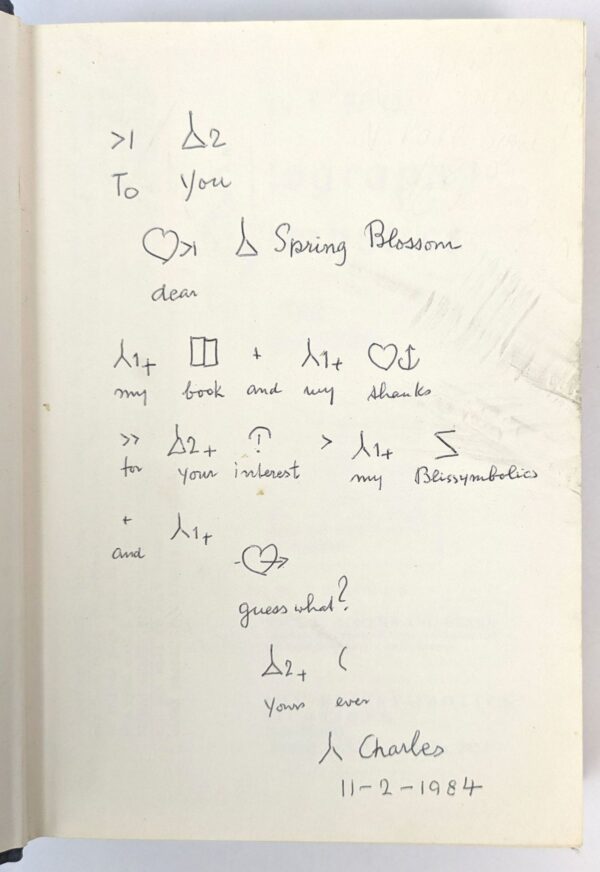 >1 Δ2
To You
♡>1 Δ Spring Blossom
dear
⅄1+ + ⅄1+ ♡
my book and my thanks
>> Δ2+ > ⅄1+
for your interest my Blissymbolics
+ ⅄1+
and
guess what?
Δ2+ (
Yours ever
⅄ Charles
11-2-1984